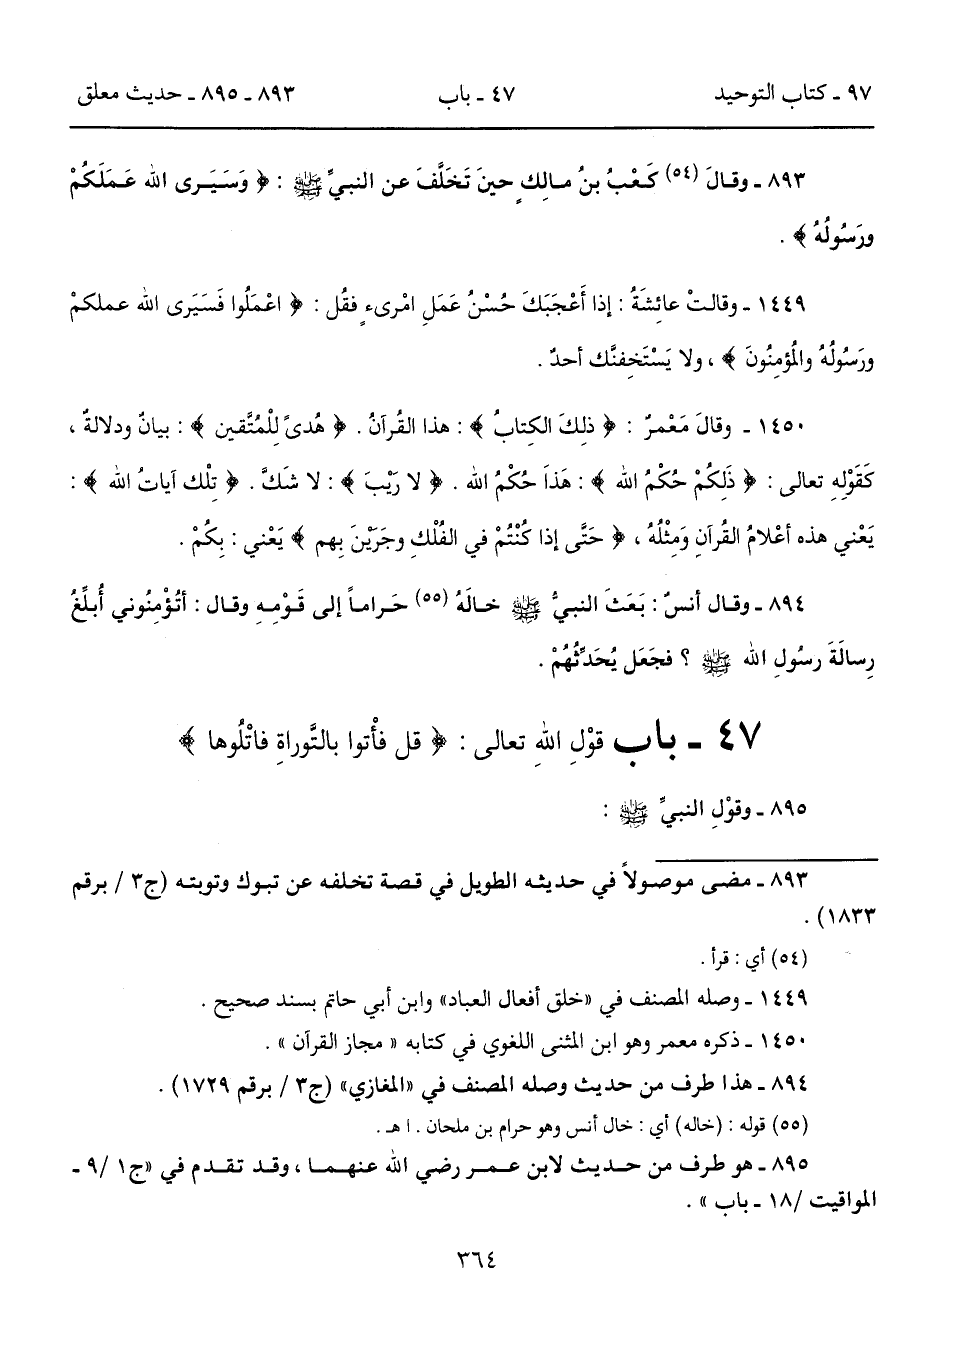 ٩٧ ـ كتاب التوحيد
٤٧ ـ باب
٨٩٣ ـ ٨٩٥ ـ حديث معلق
٨٩٣ ـ وقالَ (٥٤) كَعْبُ بنُ مالِكٍ حينَ تَخَلَّفَ عن النبيِّ ﷺ : ﴿ وَسَيَرى الله عَمَلَكُمْ
ورَسُولُهُ ﴾ .
١٤٤٩ ـ وقالتْ عائِشَةُ : إذا أَعْجَبَكَ حُسْنُ عَمَلِ امْرِىءٍ فقُل : ﴿ اعْمَلُوا فَسَيَرى الله عملكمْ
ورَسُولُهُ والمُؤمِنُونَ ﴾ ، ولا يَسْتَخِفنَّك أحدٌ .
١٤٥٠ ـ وقالَ مَعْمَرٌ : ﴿ ذلِكَ الكِتابُ ﴾ : هذا القُرآنُ . ﴿ هُدىً لِلْمُتَّقين ﴾ : بيانٌ ودلالةٌ ،
كَقَوْلِهِ تعالى : ﴿ ذَلِكُمْ حُكْمُ الله ﴾ : هَذَا حُكْمُ الله . ﴿ لا رَيْبَ ﴾ : لا شكَّ . ﴿ تِلْك آياتُ الله ﴾ :
يَعْني هذه أعْلامُ القُرآنِ وَمِثْلُهُ ، ﴿ حَتَّى إذا كُنْتُمْ في الفُلْكِ وجَرَيْنَ بِهم ﴾ يَعْني : بِكُمْ .
٨٩٤ ـ وقال أنسٌ : بَعَثَ النبيُّ ﷺ خالَهُ (٥٥) حَراماً إلى قَوْمِهِ وقال : أتُؤْمِنُوني أُبلِّغُ
رِسالَةَ رسُولِ الله ﷺ ؟ فجَعَل يُحَدِّثُهُمْ .
٤٧ ـ باب قوْلِ اللهِ تعالى : ﴿ قل فأْتوا بالتَّوراةِ فاتْلُوها ﴾
٨٩٥ ـ وقوْلِ النبيِّ ﷺ :
٨٩٣ ـ مضى موصولاً في حديثه الطويل في قصة تخلفه عن تبوك وتوبته (ج٣ / برقم
١٨٣٣) .
(٥٤) أي : قرأ .
١٤٤٩ ـ وصله المصنف في «خلق أفعال العباد» وابن أبي حاتم بسند صحيح .
١٤٥٠ ـ ذكره معمر وهو ابن المثنى اللغوي في كتابه « مجاز القرآن » .
٨٩٤ ـ هذا طرف من حديث وصله المصنف في «المغازي» (ج٣ / برقم ١٧٢٩) .
(٥٥) قوله : (خاله) أي : خال أنس وهو حرام بن ملحان . ا هـ .
٨٩٥ ـ هو طرف من حديث لابن عمر رضي الله عنهما ، وقد تقدم في «ج١ /٩ ـ
المواقيت /١٨ ـ باب » .
٣٦٤